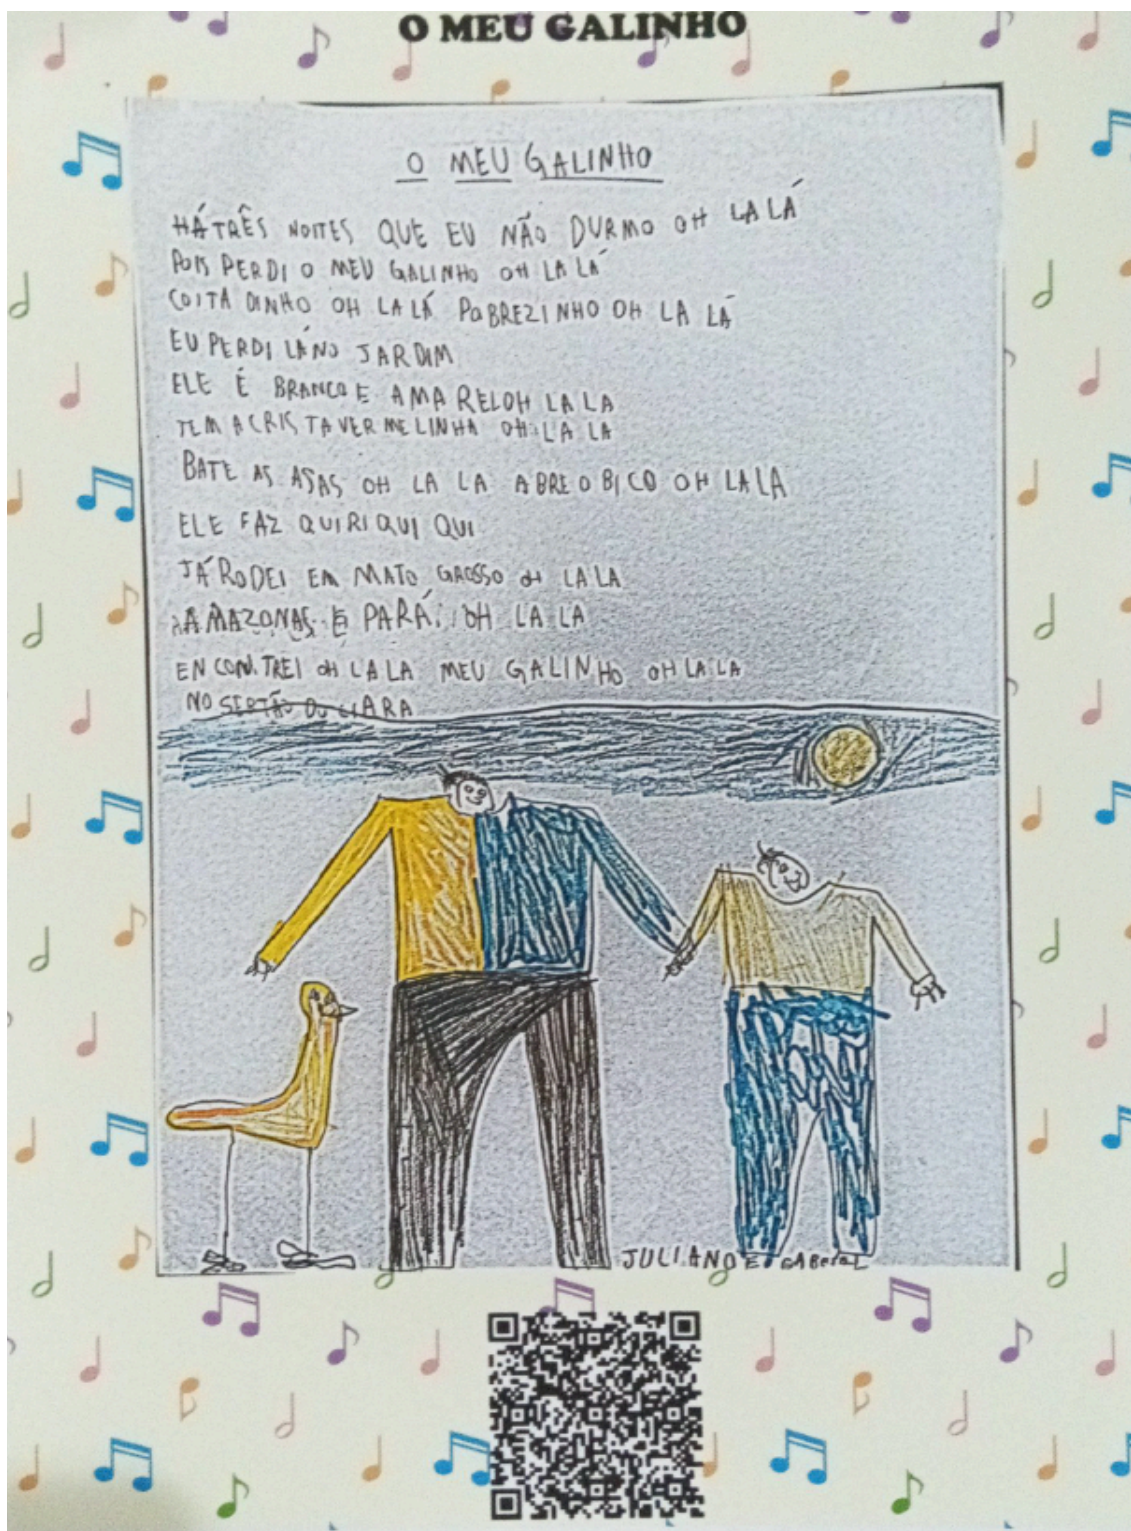 O MEU GALINHO
O MEU GALINHO
HÁ TRÊS NOITES QUE EU NÃO DURMO OH LA LÁ
POIS PERDI O MEU GALINHO OH LA LÁ
COITA DINHO OH LA LÁ POBREZINHO OH LA LÁ
EU PERDI LÁ NO JARDIM
ELE É BRANCO E AMA RELOH LA LA
TEM A CRIS TA VER ME LINHA OH LA LA
BATE AS ASAS OH LA LA ABRE O BICO OH LA LA
ELE FAZ QUIRI QUI QUI
JÁ RODEI EM MATO GROSSO OH LA LA
AMAZONAS E PARÁ OH LA LA
EN CON TREI OH LA LA MEU GALINHO OH LA LA
NO SERTÃO DO CIARA
JULIANO E GABRIEL